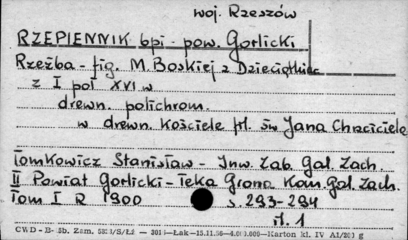 woj. Rzeszów
RZEPIENNIK bpi - pow. Gorlicki
Rzeźba - fig. M. Boskiej z Dzieciątkiem
z I poł XVI w
drewn. polichrom.
w drewn. kościele pł. św Jana Chrzciciela
Tomkowicz Stanisław - Inw. Zab. Gal. Zach.
II Powiat Gorlicki - Teka Grona Kon. Gal. Zach.
Tom I R 1900 s. 293-294
il. 1
CWD - B- Zam. - Karton kl. IV A1/ g